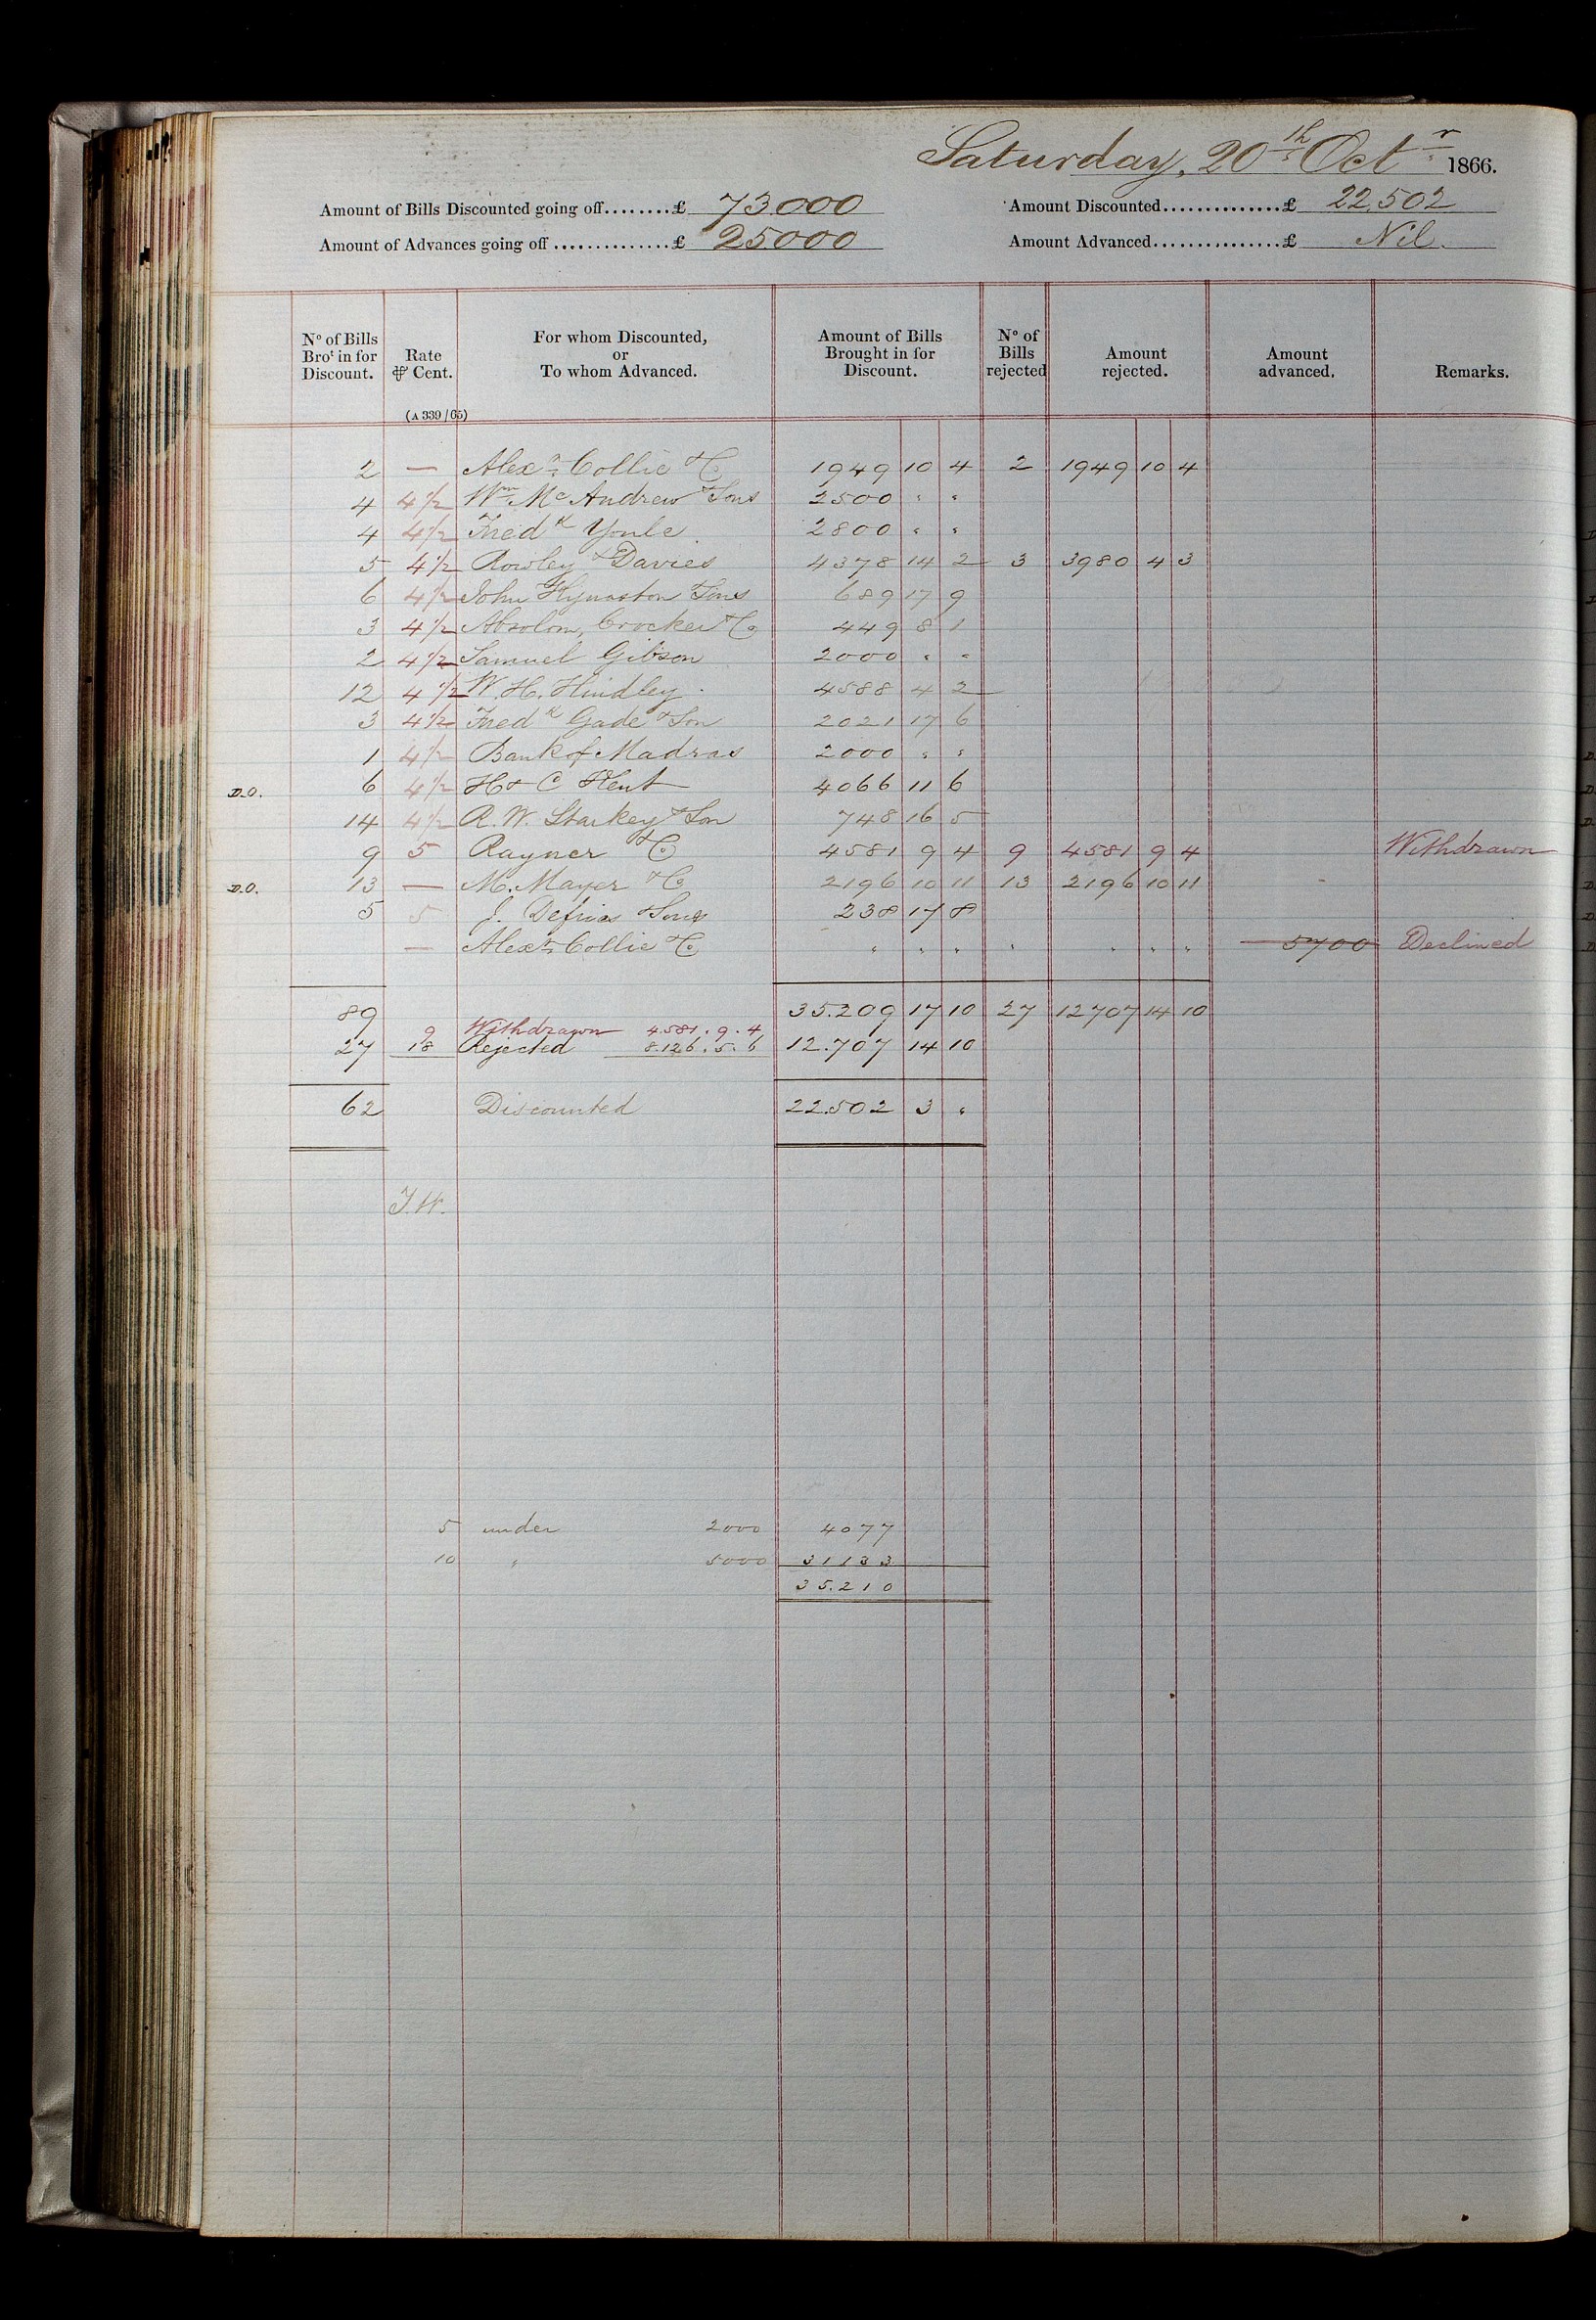 Saturday, 20th Octr 1866.
Amount of Bills Discounted going off........£ 73.000 Amount Discounted...............£ 22.502
Amount of Advances going off...............£ 25000 Amount Advanced...............£ Nil.
No of Bills Brot in for Discount. Rate ⅌ Cent. For whom Discounted, or To whom Advanced. Amount of Bills Brought in for Discount. No of Bills rejected Amount rejected. Amount advanced. Remarks.
(A 339/65)
2 — Alexr Collie & Co 1949 10 4 2 1949 10 4
4 4½ Wm McAndrew & Sons 2500 " "
4 4½ Fredk Youle 2800 " "
5 4½ Rowley & Davies 4378 14 2 3 3980 4 3
6 4½ John Kynaston & Sons 689 17 9
3 4½ Absolom, Crocker & Co 449 8 1
2 4½ Samuel Gibson 2000 " "
12 4½ W. H. Hindley 4588 4 2
3 4½ Fredk Gade & Son 2021 17 6
1 4½ Bank of Madras 2000 " "
D.O. 6 4½ H & C Kent 4066 11 6
14 4½ R. W. Starkey & Son 748 16 5
9 5 Rayner & Co 4581 9 4 9 4581 9 4 Withdrawn
D.O. 13 — M. Mayer & Co 2196 10 11 13 2196 10 11
5 5 J. Defries & Sons 238 17 8
— Alexr Collie & Co " " " " " " " 5700 Declined
89 35.209 17 10 27 12707 14 10
9 Withdrawn 4.581. 9. 4
27 18 Rejected 8.126. 5. 6 12.707 14 10
62 Discounted 22.502 3 "
J.W.
5 under 2000 4077
10 " 5000 31133
35.210